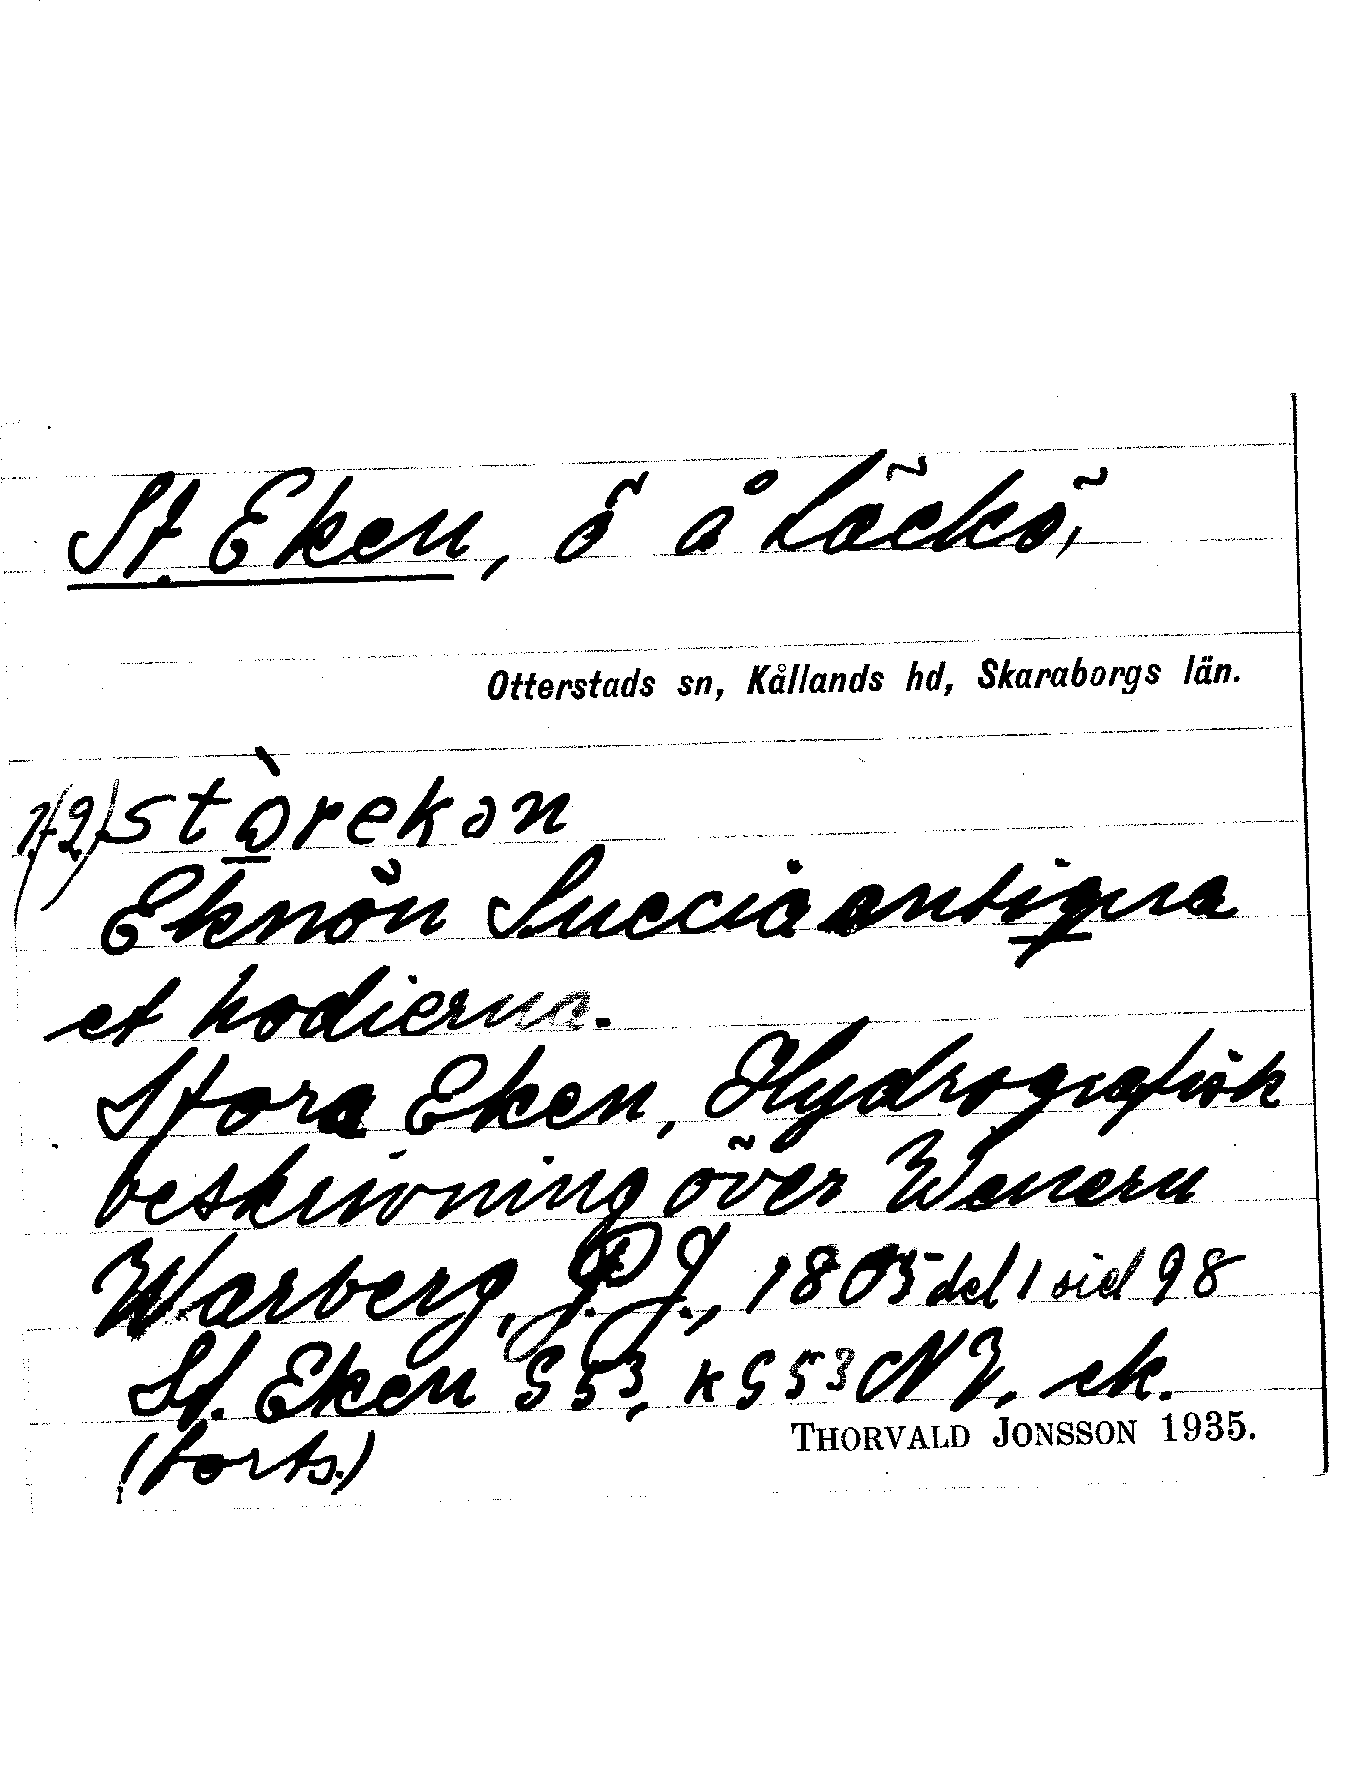 St. Eken, ö å Läckö,
Otterstads sn, Kållands hd, Skaraborgs län.
1/2) stòrekən
Eknön Suecia antiqua
et hodierna.
Stora Eken, Hydrografisk
beskrivning över Wenern
Warberg, P. J., 1805 del 1 sid 98
St. Eken G53, k G53 NV, ek.
(forts.)
THORVALD JONSSON 1935.